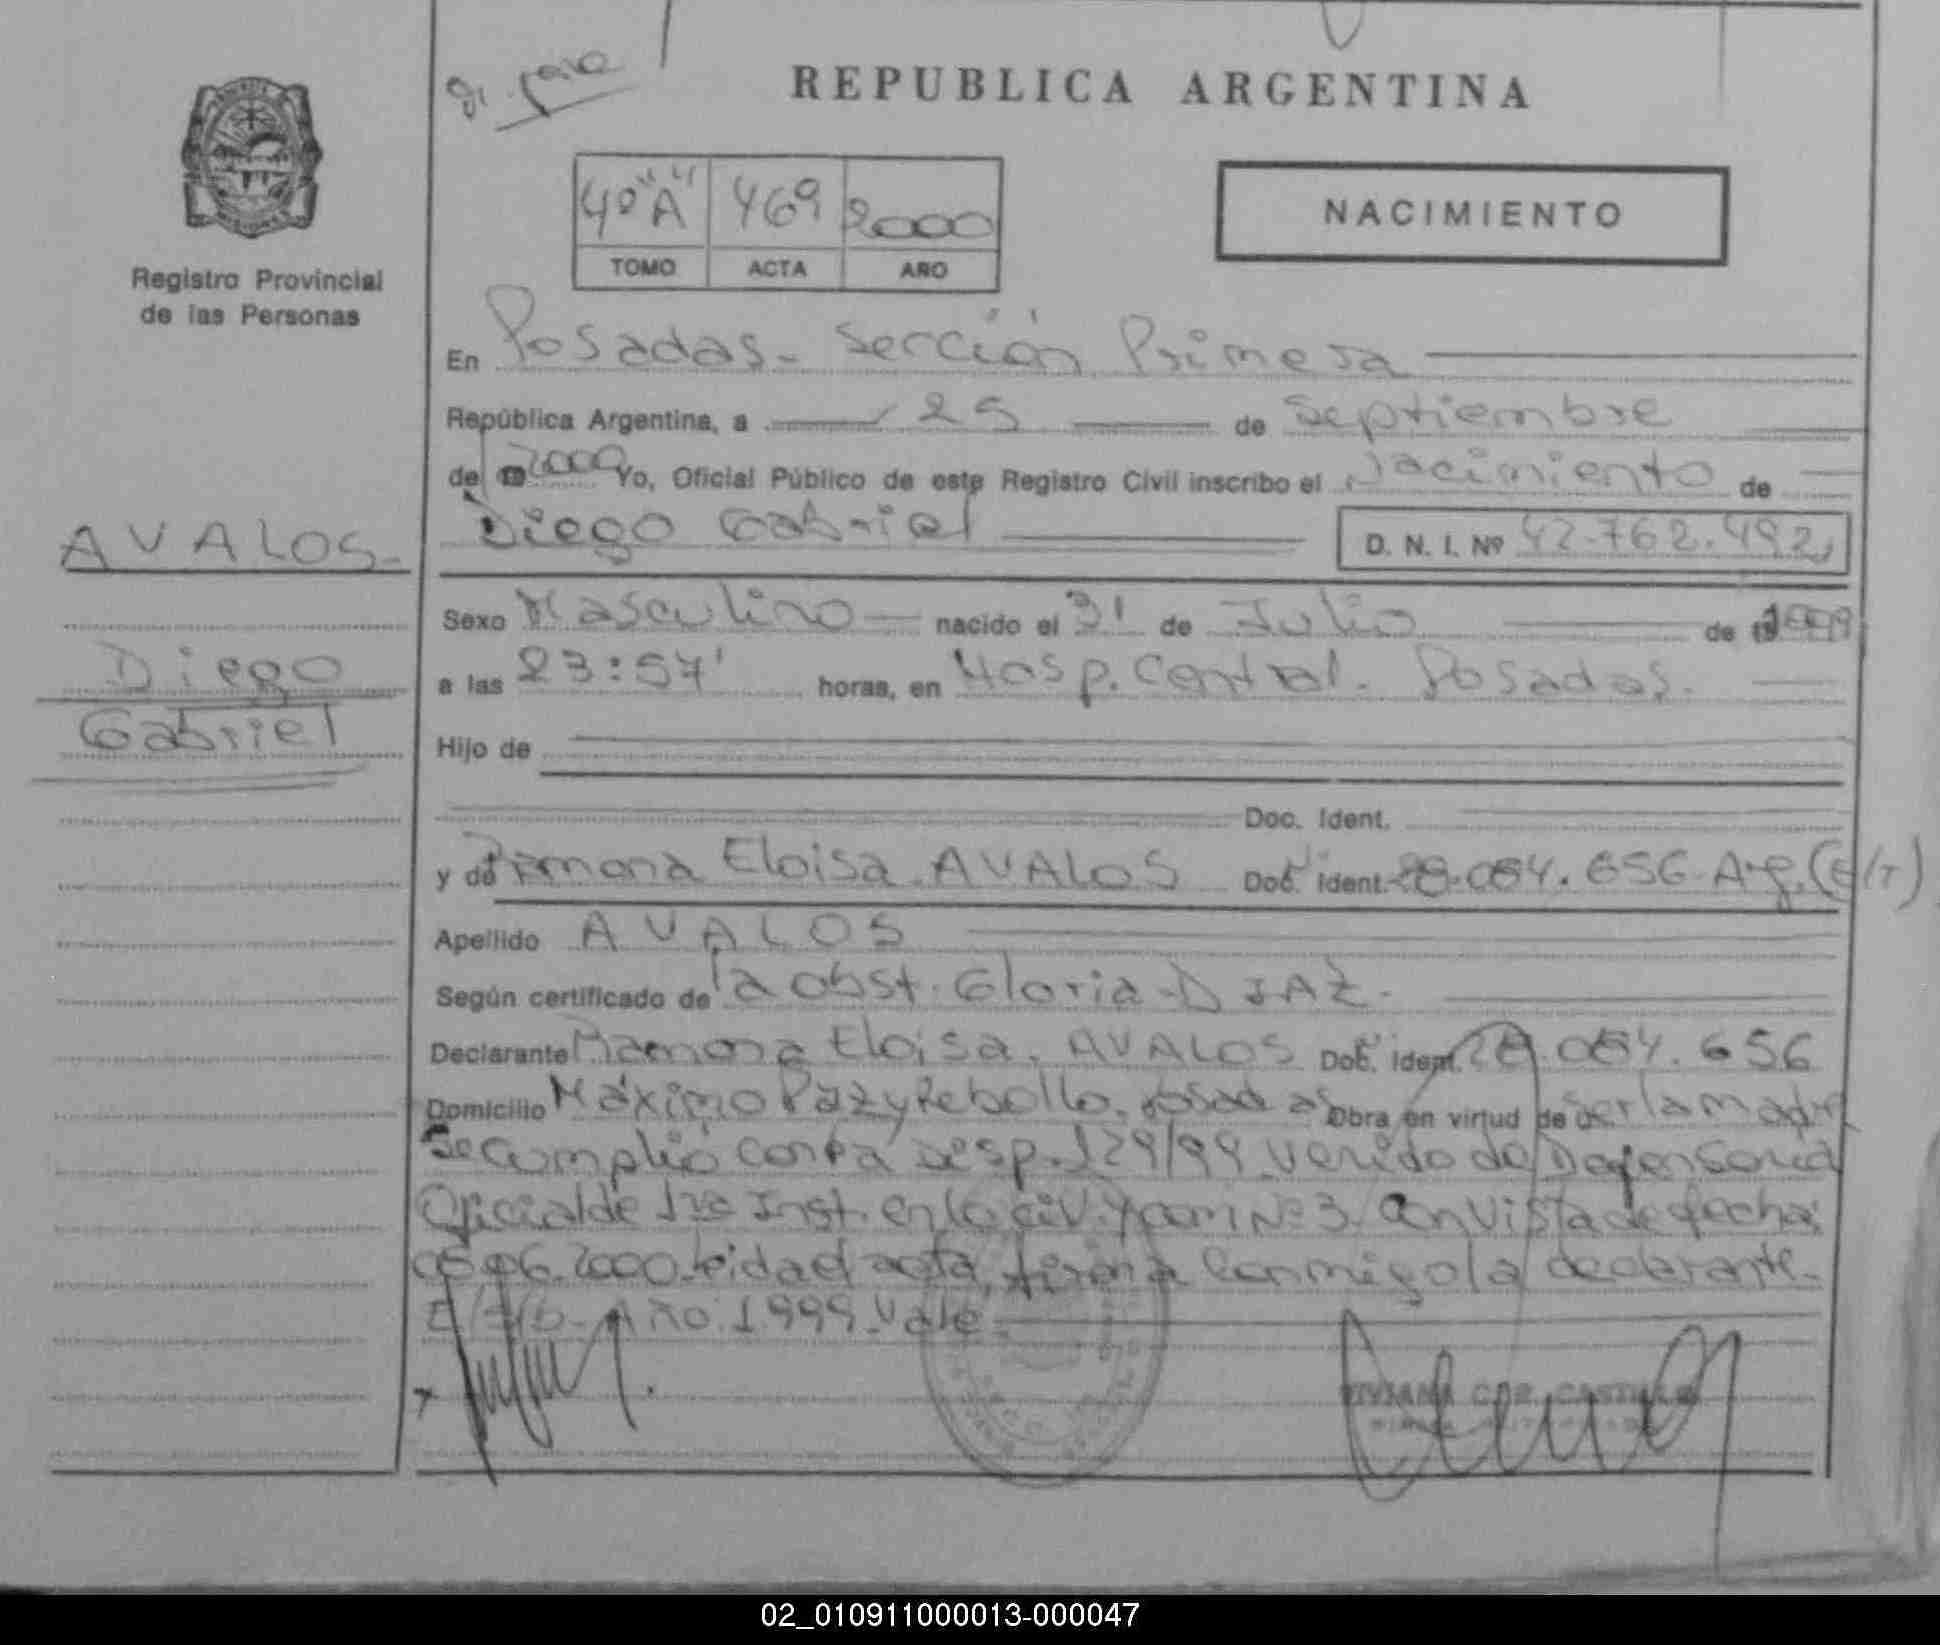 REPUBLICA ARGENTINA
4º "A" 469 2000
TOMO ACTA AÑO
NACIMIENTO
Registro Provincial
de las Personas
En Posadas - Sección Primera
República Argentina, a 25 de Septiembre
de 2000 Yo, Oficial Público de este Registro Civil inscribo el Nacimiento de
Diego Gabriel D. N. I. Nº 42.762.492
AVALOS
Diego
Gabriel
Sexo Masculino nacido el 31 de Julio de 1999
a las 23:57' horas, en Hosp. Central. Posadas.
Hijo de
Doc. Ident.
y de Ramona Eloisa AVALOS Doc. Ident. 28.084.656 Arg. (S/T)
Apellido AVALOS
Según certificado de la obst. Gloria DIAZ.
Declarante Ramona Eloisa. AVALOS Doc. Ident. 28.084.656
Domicilio Máximo Paz y Rebollo. Posadas Obra en virtud de ser la madre
Se cumplió con la Disp. 129/99 venido de Defensoria
Oficial de 1ra Inst. en lo civ. y com Nº 3. Con vista de fecha:
05.06.2000. Leida el acta, firma conmigo la declarante.
Año 1999. Vale
VIVIANA CASTILLO
02_010911000013-000047